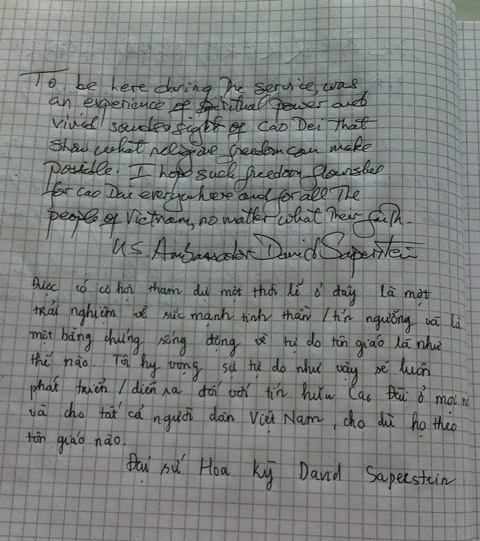 To be here during the service, was
an experience of spiritual power and
vivid sounds sight of Cao Dei That
show what religious freedom can make
possible. I hope such freedom flourishes
for Cao Dai everywhere and for all The
people of Vietnam, no matter what Their faith.
U.S. Ambassador David Saperstein
Được có cơ hội tham dự một thời lễ ở đây là một
trải nghiệm về sức mạnh tinh thần / tín ngưỡng và là
một bằng chứng sống động về tự do tôn giáo là như
thế nào. Tôi hy vọng sự tự do như vậy sẽ luôn
phát triển / diễn ra đối với tín hữu Cao Đài ở mọi
và cho tất cả người dân Việt Nam, cho dù họ theo
tôn giáo nào.
Đại sứ Hoa Kỳ David Saperstein